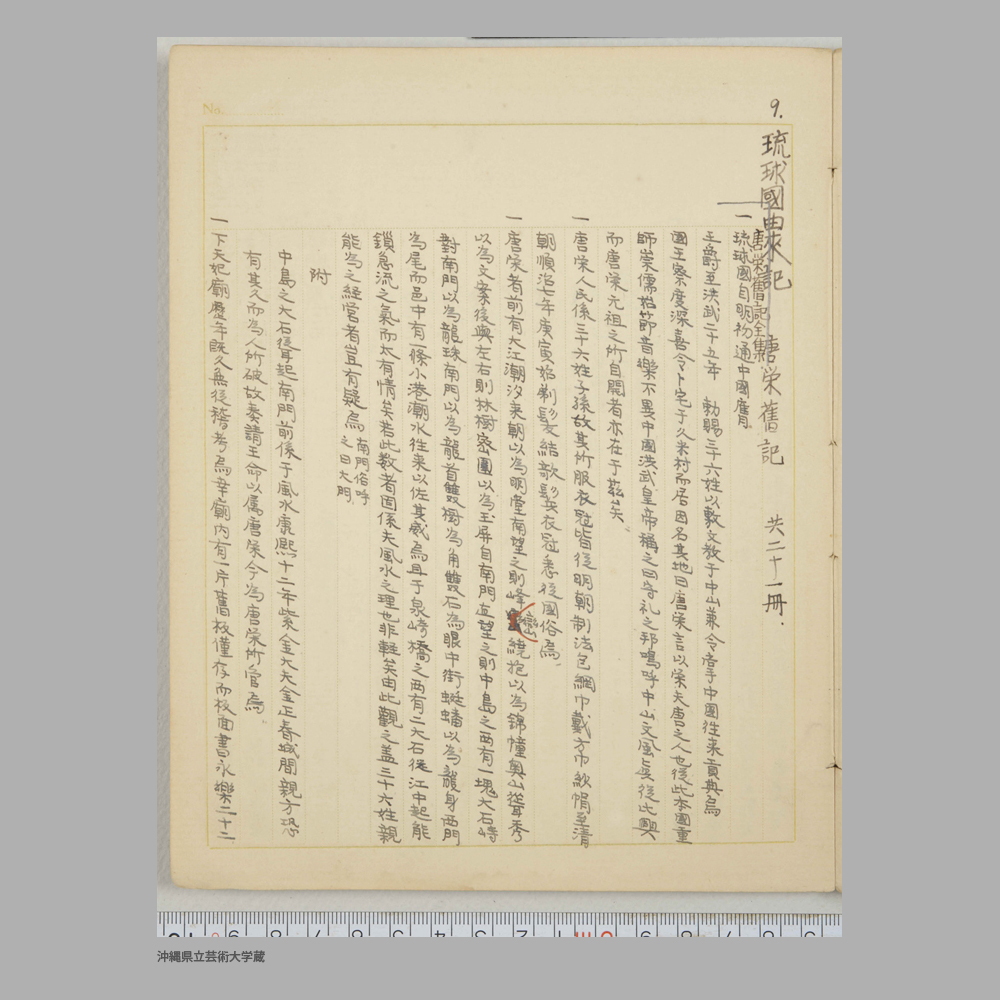 9.
琉球國由来記 唐栄舊記 共二十一冊.
唐栄舊記全集
一 琉球國自明初通中國膺
王爵至洪武二十五年 勅賜三十六姓以敷文教于中山兼令掌中國往来貢典焉
國王察度深喜令卜宅于久米村而居因名其地曰唐栄言以栄夫唐之人也従此本國重
師崇儒始節音樂不異中國洪武皇帝稱之曰守礼之邦嗚呼中山文風長従此興
而唐栄元祖之所自開者亦在于茲矣
一 唐栄人民係三十六姓子孫故其所服衣冠皆従明朝制法包網巾戴方巾紗帽至清
朝順治七年庚寅始剃髪結欹髻衣冠悉従國俗焉.
一 唐栄者前有大江潮汐来朝以為明堂南望之則峰巒繞抱以為錦幢奥山聳秀
以為文案後與左右則林樹密圍以為玉屏自南門直望之則中島之西有一塊大石峙
對南門以為龍珠南門以為龍首雙樹為角雙石為眼中街蜓蟠以為龍身西門
為尾而邑中有一條小港潮水往来以佐其威焉且于泉崎橋之西有二大石従江中起能
鎖急流之氣而太有情矣若此数者固係夫風水之理也非軽矣由此觀之盖三十六姓親
能為之経営者豈有疑焉 南門俗呼之曰大門.
附
中島之大石聳起南門前係于風水康熙十二年紫金大夫金正春城間親方恐
有其久而為人所破故奏請王命以属唐栄今為唐栄所管焉.
一 下天妃廟歴年既久無従稽考焉幸廟内有一斤舊板僅存而板面書永樂二十二
沖縄県立芸術大学蔵